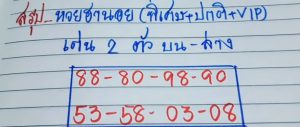 สรุป.. หวยฮานอย (พิเศษ+ปกติ+VIP)
เด่น 2 ตัว บน-ล่าง
88-80-98-90
53-58-03-08